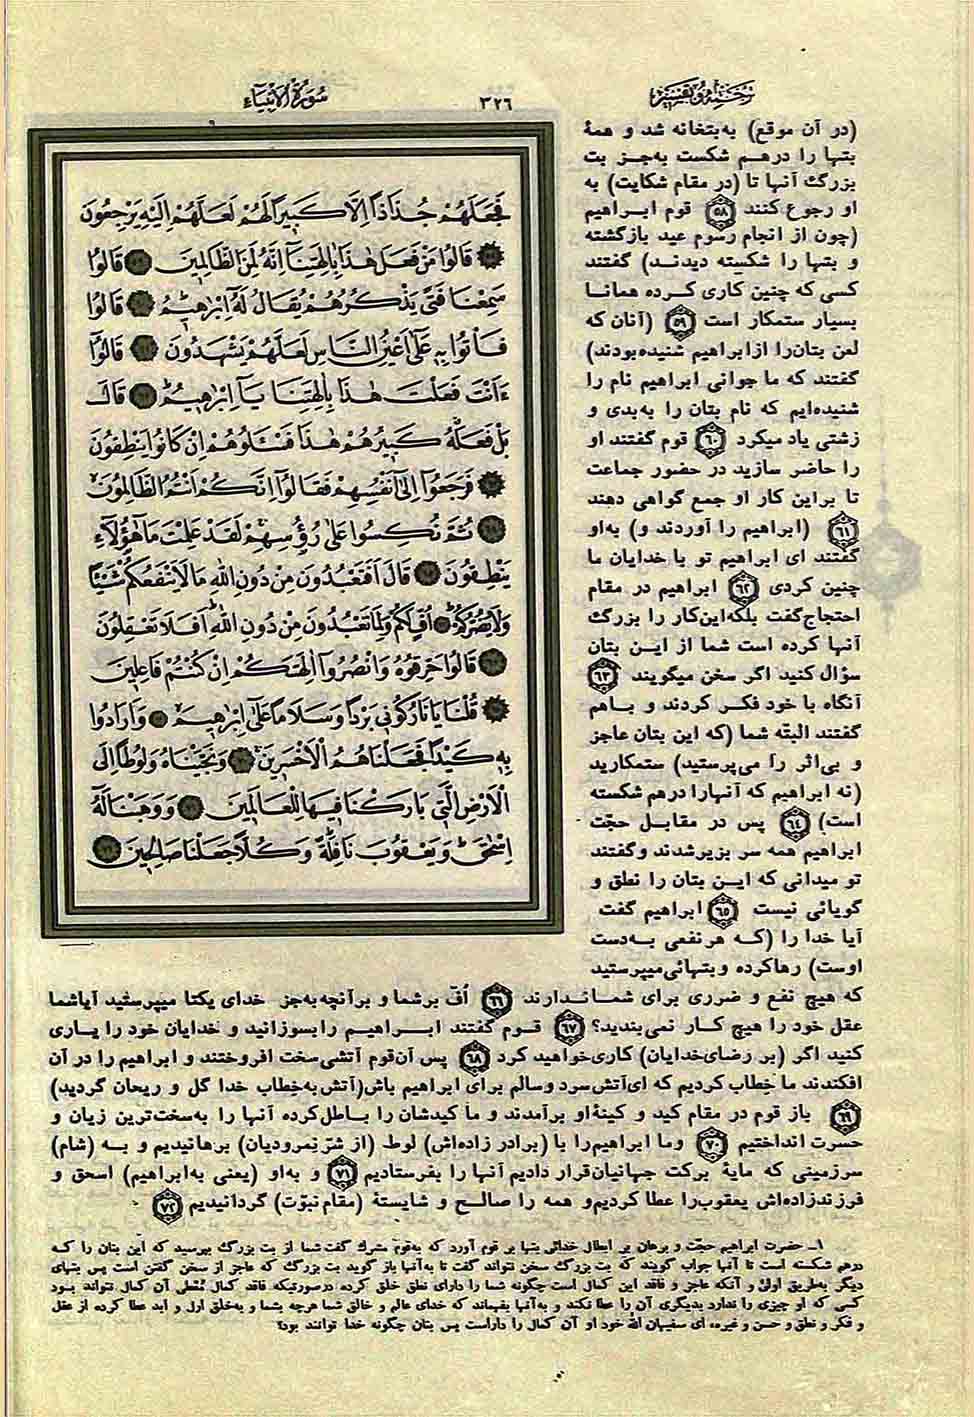 ترجمه و تفسیر
۳۲۶
سُورَةُ الْأَنْبِيَاء
فَجَعَلَهُمْ جُذَاذًا إِلَّا كَبِيرًا لَهُمْ لَعَلَّهُمْ إِلَيْهِ يَرْجِعُونَ
﴿۵۸﴾ قَالُوا مَنْ فَعَلَ هٰذَا بِاٰلِهَتِنَا إِنَّهُ لَمِنَ الظَّالِمِينَ ﴿۵۹﴾ قَالُوا
سَمِعْنَا فَتًى يَذْكُرُهُمْ يُقَالُ لَهُ إِبْرٰهِيمُ ﴿۶۰﴾ قَالُوا
فَأْتُوا بِهِ عَلٰى أَعْيُنِ النَّاسِ لَعَلَّهُمْ يَشْهَدُونَ ﴿۶۱﴾ قَالُوا
ءَأَنْتَ فَعَلْتَ هٰذَا بِاٰلِهَتِنَا يَا إِبْرٰهِيمُ ﴿۶۲﴾ قَالَ
بَلْ فَعَلَهُ كَبِيرُهُمْ هٰذَا فَسْئَلُوهُمْ إِنْ كَانُوا يَنْطِقُونَ
﴿۶۳﴾ فَرَجَعُوا إِلٰى أَنْفُسِهِمْ فَقَالُوا إِنَّكُمْ أَنْتُمُ الظَّالِمُونَ
﴿۶۴﴾ ثُمَّ نُكِسُوا عَلٰى رُؤُسِهِمْ لَقَدْ عَلِمْتَ مَا هٰؤُلَاءِ
يَنْطِقُونَ ﴿۶۵﴾ قَالَ أَفَتَعْبُدُونَ مِنْ دُونِ اللهِ مَا لَا يَنْفَعُكُمْ شَيْئًا
وَلَا يَضُرُّكُمْ ﴿۶۶﴾ أُفٍّ لَكُمْ وَلِمَا تَعْبُدُونَ مِنْ دُونِ اللهِ أَفَلَا تَعْقِلُونَ
﴿۶۷﴾ قَالُوا حَرِّقُوهُ وَانْصُرُوا اٰلِهَتَكُمْ إِنْ كُنْتُمْ فَاعِلِينَ
﴿۶۸﴾ قُلْنَا يَا نَارُ كُونِي بَرْدًا وَسَلَامًا عَلٰى إِبْرٰهِيمَ ﴿۶۹﴾ وَأَرَادُوا
بِهِ كَيْدًا فَجَعَلْنَاهُمُ الْأَخْسَرِينَ ﴿۷۰﴾ وَنَجَّيْنَاهُ وَلُوطًا إِلَى
الْأَرْضِ الَّتِي بَارَكْنَا فِيهَا لِلْعَالَمِينَ ﴿۷۱﴾ وَوَهَبْنَا لَهُ
إِسْحٰقَ وَيَعْقُوبَ نَافِلَةً وَكُلًّا جَعَلْنَا صَالِحِينَ ﴿۷۲﴾
(در آن موقع) به‌بتخانه شد و همهٔ
بتها را درهم شکست به‌جز بت
بزرگ آنها تا (در مقام شکایت) به
او رجوع کنند ﴿۵۸﴾ قوم ابراهیم
(چون از انجام رسوم عید بازگشته
و بتها را شکسته دیدند) گفتند
کسی که چنین کاری کرده همانا
بسیار ستمکار است ﴿۵۹﴾ (آنان که
لعن بتان‌را از ابراهیم شنیده‌بودند)
گفتند که ما جوانی ابراهیم نام را
شنیده‌ایم که نام بتان را به‌بدی و
زشتی یاد میکرد ﴿۶۰﴾ قوم گفتند او
را حاضر سازید در حضور جماعت
تا براین کار او جمع گواهی دهند
﴿۶۱﴾ (ابراهیم را آوردند و) به‌او
گفتند ای ابراهیم تو با خدایان ما
چنین کردی ﴿۶۲﴾ ابراهیم در مقام
احتجاج‌گفت بلکه‌این‌کار را بزرگ
آنها کرده است شما از این بتان
سؤال کنید اگر سخن میگویند ﴿۶۳﴾
آنگاه با خود فکر کردند و باهم
گفتند البتّه شما (که این بتان عاجز
و بی‌اثر را می‌پرستید) ستمکارید
(نه ابراهیم که آنهارا درهم شکسته
است) ﴿۶۴﴾ پس در مقابل حجّت
ابراهیم همه سر بزیر شدند و گفتند
تو میدانی که این بتان را نطق و
گویائی نیست ﴿۶۵﴾ ابراهیم گفت
آیا خدا را (که هرنفعی به‌دست
اوست) رها کرده و بتهائی میپرستید
که هیچ نفع و ضرری برای شما ندارند ﴿۶۶﴾ اُفّ برشما و برآنچه به‌جز خدای یکتا میپرستید آیاشما
عقل خود را هیچ کار نمی‌بندید؟ ﴿۶۷﴾ قوم گفتند ابراهیم را بسوزانید و خدایان خود را یاری
کنید اگر (بر رضای خدایان) کاری خواهید کرد ﴿۶۸﴾ پس آن‌قوم آتشی سخت افروختند و ابراهیم را در آن
افکندند ما خِطاب کردیم که ای‌آتش سرد و سالم برای ابراهیم باش(آتش به‌خِطاب خدا گل و ریحان گردید)
﴿۶۹﴾ باز قوم در مقام کید و کینهٔ او برآمدند و ما کیدشان را باطل کرده آنها را به‌سخت‌ترین زیان و
حسرت انداختیم ﴿۷۰﴾ وما ابراهیم‌را با (برادر زاده‌اش) لوط (از شرّ نِمرودیان) برهانیدیم و به (شام)
سرزمینی که مایهٔ برکت جهانیان قرار دادیم آنها را بفرستادیم ﴿۷۱﴾ و به‌او (یعنی به‌ابراهیم) اسحق و
فرزندزاده‌اش یعقوب‌را عطا کردیم و همه را صالح و شایستهٔ (مقام نبوّت) گردانیدیم ﴿۷۲﴾
۱ـ حضرت ابراهیم حجّت و برهان بر ابطال خدائی بتها بر قوم آورد که به‌قوم مشرک گفت شما از بت بزرگ بپرسید که این بتان را که
درهم شکسته است تا آنها جواب گویند که بت بزرگ سخن نتواند گفت تا به‌آنها باز گوید بت بزرگ که عاجز از سخن گفتن است پس بتهای
دیگر به‌طریق اولیٰ و آنکه عاجز و فاقد این کمال است چگونه شما را دارای نطق خلق کرده درصورتیکه فاقد کمال مُعطی آن کمال نتواند بود
کسی که او چیزی را ندارد بدیگری آن را عطا نکند و به‌آنها بفهماند که خدای عالم و خالق شما هرچه بشما و به‌خلق اول و ابد عطا کرده از عقل
و فکر و نطق و حسن و غیره، ای سفیهان الله خود او آن کمال را داراست پس بتان چگونه خدا توانند بود؟